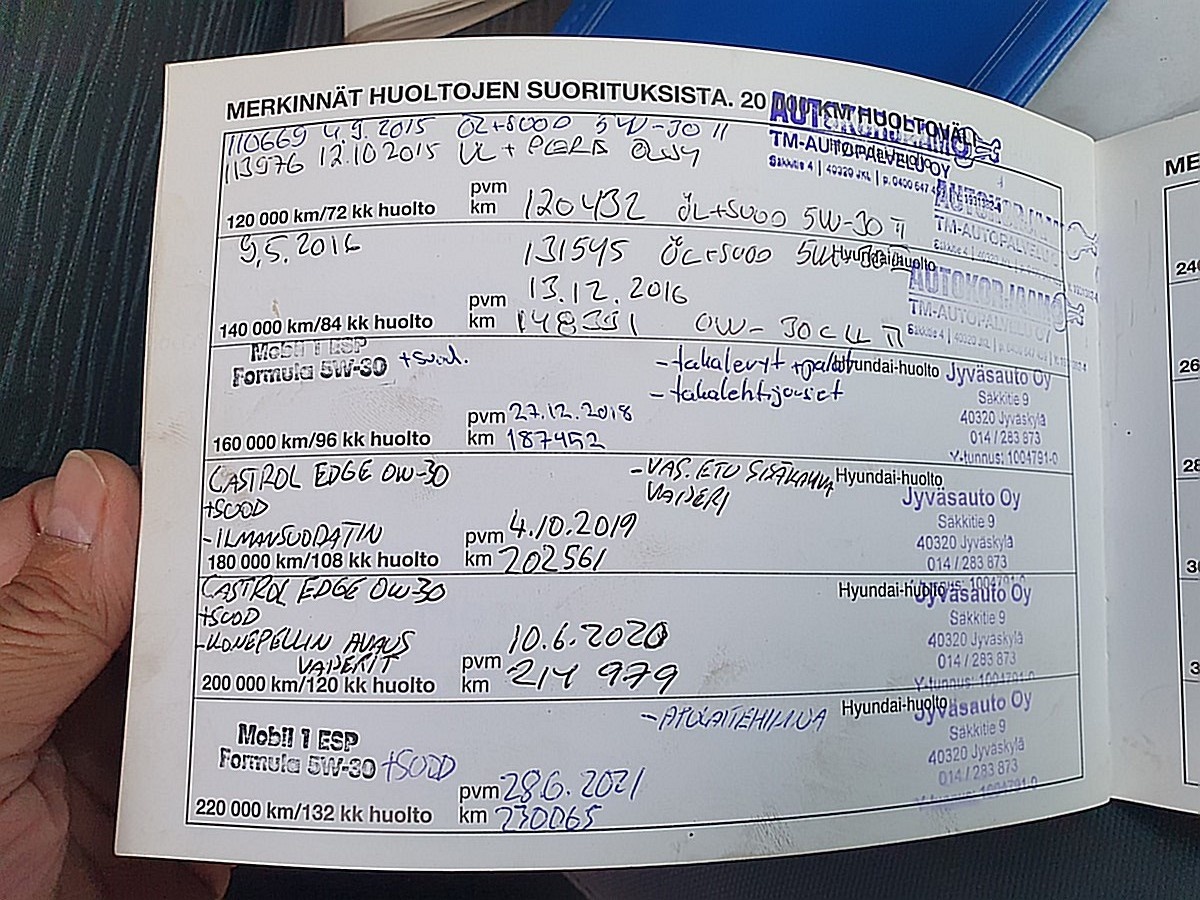 MERKINNÄT HUOLTOJEN SUORITUKSISTA. 20 KM HUOLTOVÄLI
110669 4.9.2015 ÖL+SUOD 5W-30 II
113976 12.10.2015 ÖL + PERÄ ÖLJY
AUTOKORJAAMO
TM-AUTOPALVELU OY
Säkkitie 4 | 40320 JKL | p. 0400 647
120 000 km/72 kk huolto
pvm
km 120432 ÖL+SUOD 5W-30 II
AUTOKORJAAMO
TM-AUTOPALVELU
9.5.2016
131545 ÖL+SUOD
Hyundai-huolto
13.12.2016
AUTOKORJAAMO
TM-AUTOPALVELU OY
Säkkitie 4 | 40320 JKL
140 000 km/84 kk huolto
pvm
km 148391 0W-30
Mobil 1 ESP
Formula 5W-30 +suod.
- takalevyt +palat
- takalehtijouset
Hyundai-huolto
Jyväsauto Oy
Säkkitie 9
40320 Jyväskylä
014 / 283 873
Y-tunnus: 1004791-0
160 000 km/96 kk huolto
pvm 27.12.2018
km 187452
CASTROL EDGE 0W-30
+SUOD
-ILMANSUODATIN
-VAS. ETU SISÄKAHVA
VAIJERI
Hyundai-huolto
Jyväsauto Oy
Säkkitie 9
40320 Jyväskylä
014 / 283 873
Y-tunnus: 1004791-0
180 000 km/108 kk huolto
pvm 4.10.2019
km 202561
CASTROL EDGE 0W-30
+SUOD
-KONEPELLIN AVAUS
VAIJERIT
Hyundai-huolto
Jyväsauto Oy
Säkkitie 9
40320 Jyväskylä
014 / 283 873
Y-tunnus: 1004791-0
200 000 km/120 kk huolto
pvm 10.6.2020
km 214 979
Mobil 1 ESP
Formula 5W-30 +SUOD
-APULAITEHIHNA
Hyundai-huolto
Jyväsauto Oy
Säkkitie 9
40320 Jyväskylä
014 / 283 873
Y-tunnus: 1004791-0
220 000 km/132 kk huolto
pvm 28.6.2021
km 230065
ME
240
26
28